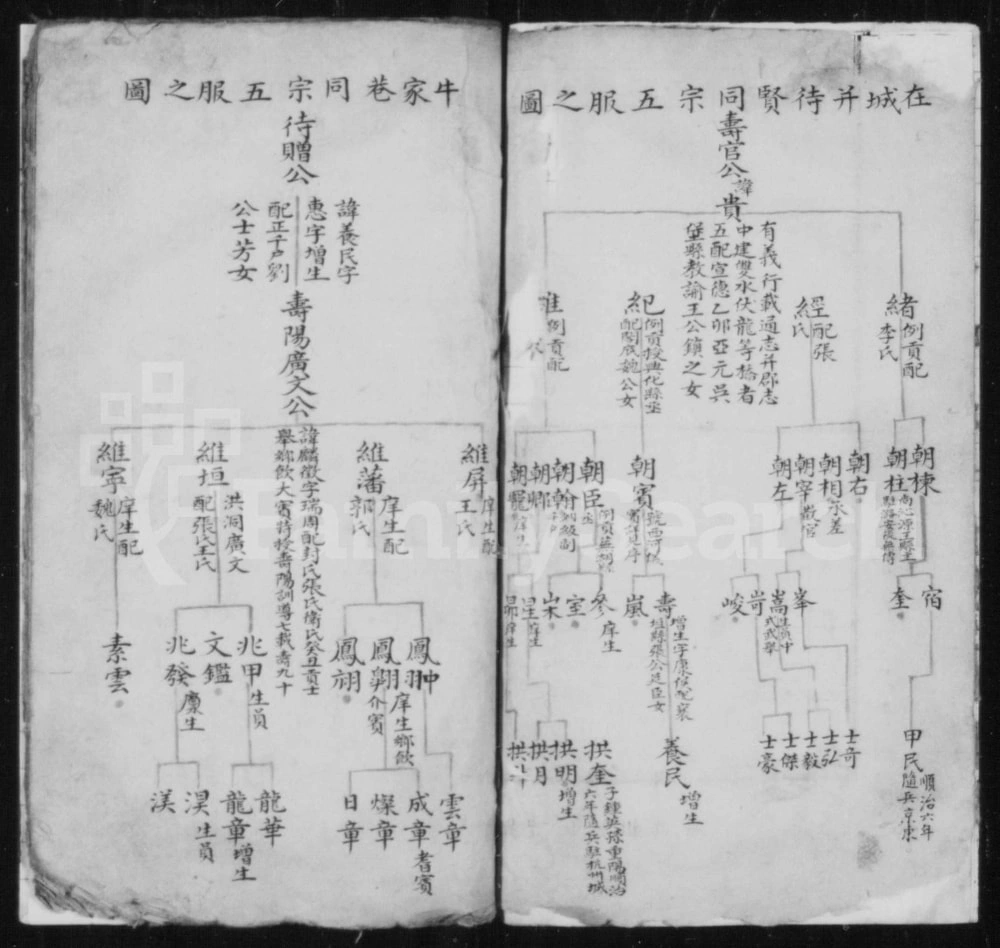 在城并待賢同宗五服之圖
壽官公
諱
貴
有義行載通志并郡志
中建雙水伏龍等橋者
五配宣德乙卯亞元吳
堡縣教諭王公鎮之女
緒
例貢配
李氏
經
配張
氏
紀
例貢授典化縣丞
公女
例貢配
朝棟
朝柱
朝右
朝相
承差
朝宰
教官
朝左
朝賓
朝臣
朝翰
朝卿
宿
奎
峯
嵩
生員中
式武舉
岢
峻
壽
增生字康侯
嵐
參
庠生
室
甲民
順治六年
隨兵京東
士奇
士弘
士毅
士傑
士豪
養民
增生
拱奎
六年隨兵駐杭州城
拱明
增生
拱月
牛家巷同宗五服之圖
待贈公
諱養民字
惠字增生
配正千户劉
公士芳女
壽陽廣文公
諱麟徵字瑞周配封氏張氏衛氏癸丑貢士
舉鄉飲大賓特授壽陽訓導七載壽九十
維屏
庠生配
王氏
維藩
庠生配
郭氏
維垣
洪洞廣文
配張氏王氏
維寧
庠生配
魏氏
鳳翀
鳳翱
庠生鄉飲
介賓
鳳翊
兆甲
生員
文鑑
兆發
廩生
素雲
雲章
成章
耆賓
燦章
日章
龍華
龍章
增生
淏
生員
渼
Family Search